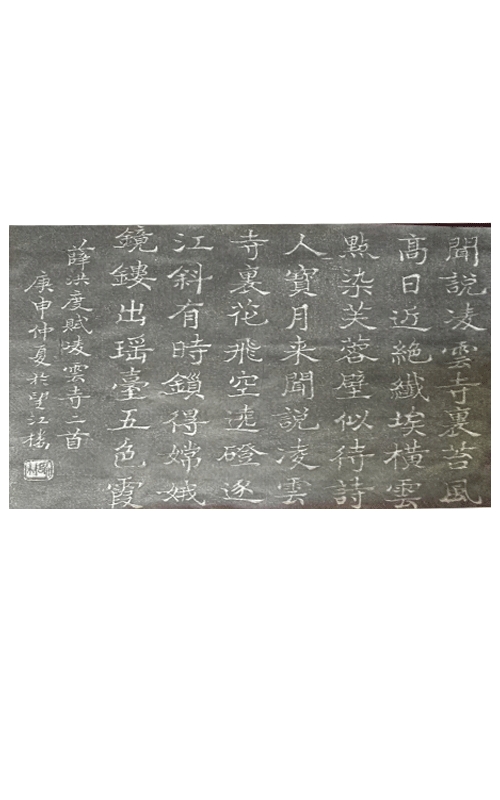 聞說凌雲寺裏苔風
高日近絕纖埃橫雲
點染芙蓉壁似待詩
人寶月来聞說凌雲
寺裏花飛空遶磴逐
江斜有時鎖得嫦娥
鏡鏤出瑶臺五色霞
薛洪度賦凌雲寺二首
庚申仲夏於望江樓